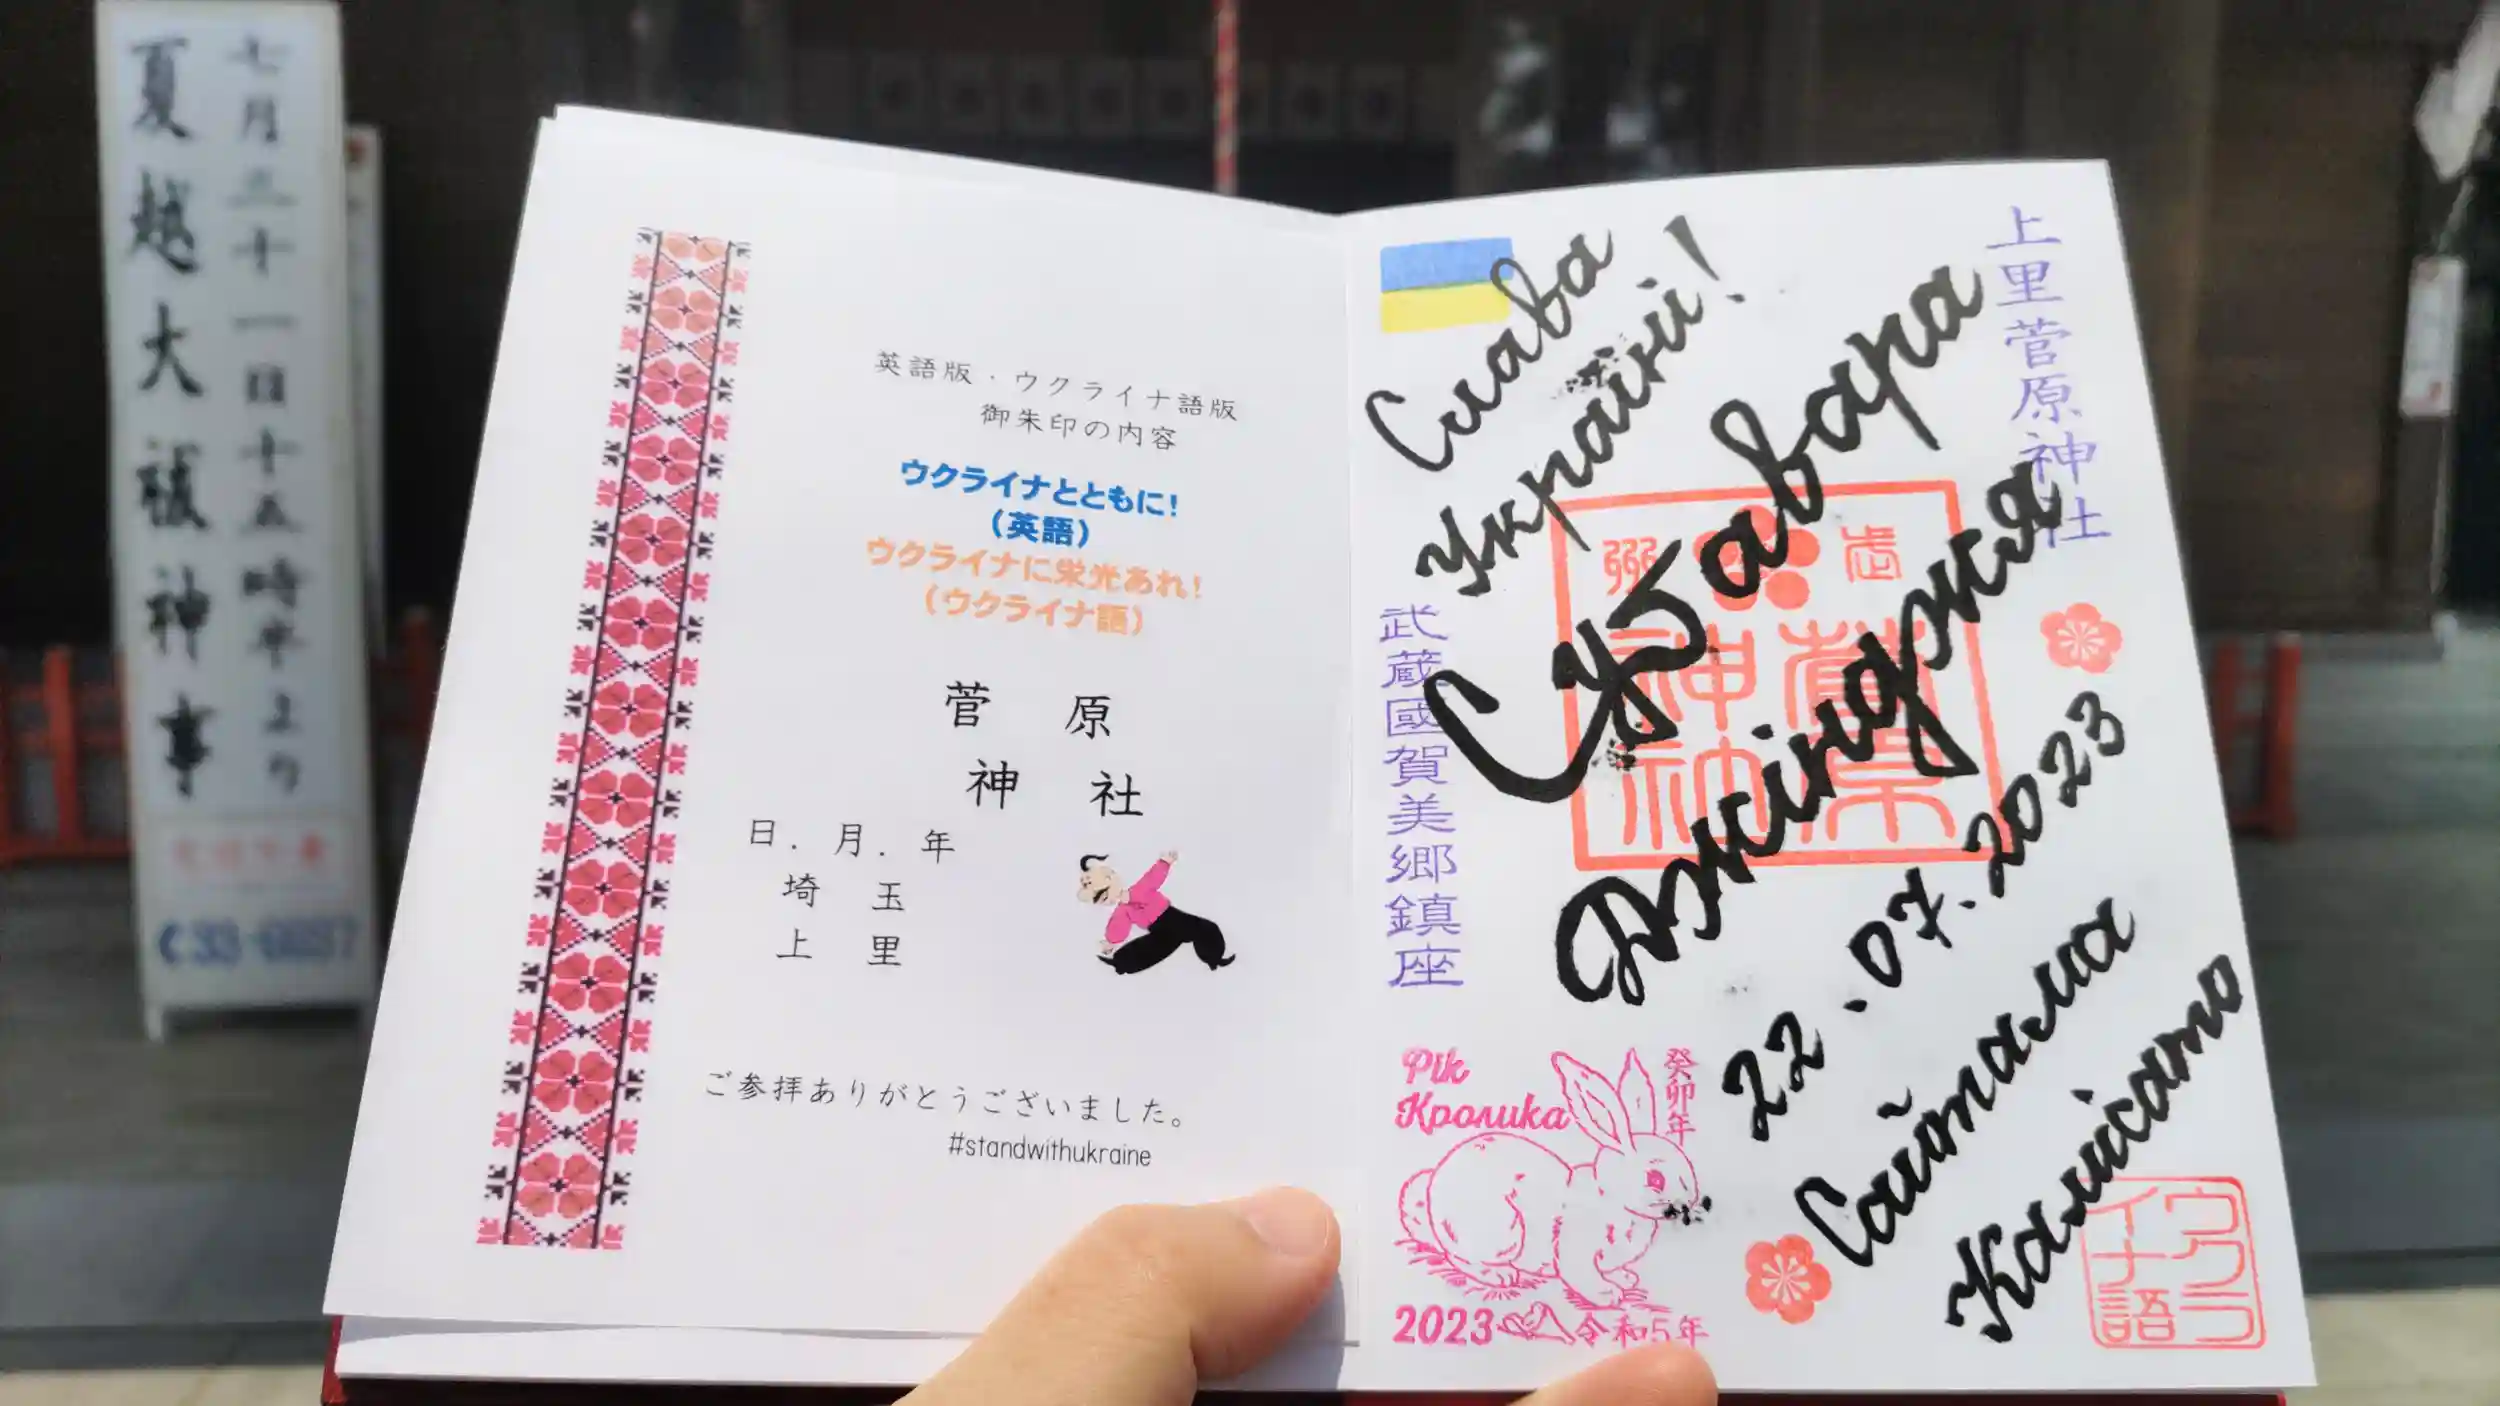 七月三十一日十五時半より
夏越大祓神事
英語版・ウクライナ語版
御朱印の内容
ウクライナとともに！
（英語）
ウクライナに栄光あれ！
（ウクライナ語）
菅原
神社
日．月．年
埼玉
上里
ご参拝ありがとうございました。
#standwithukraine
Слава
Україні!
上里菅原神社
Сухавара
Джінджя
武蔵國賀美郷鎮座
22.07.2023
Сайтама
Камісато
Рік
Кролика
癸卯年
2023
令和5年
ウクライナ語